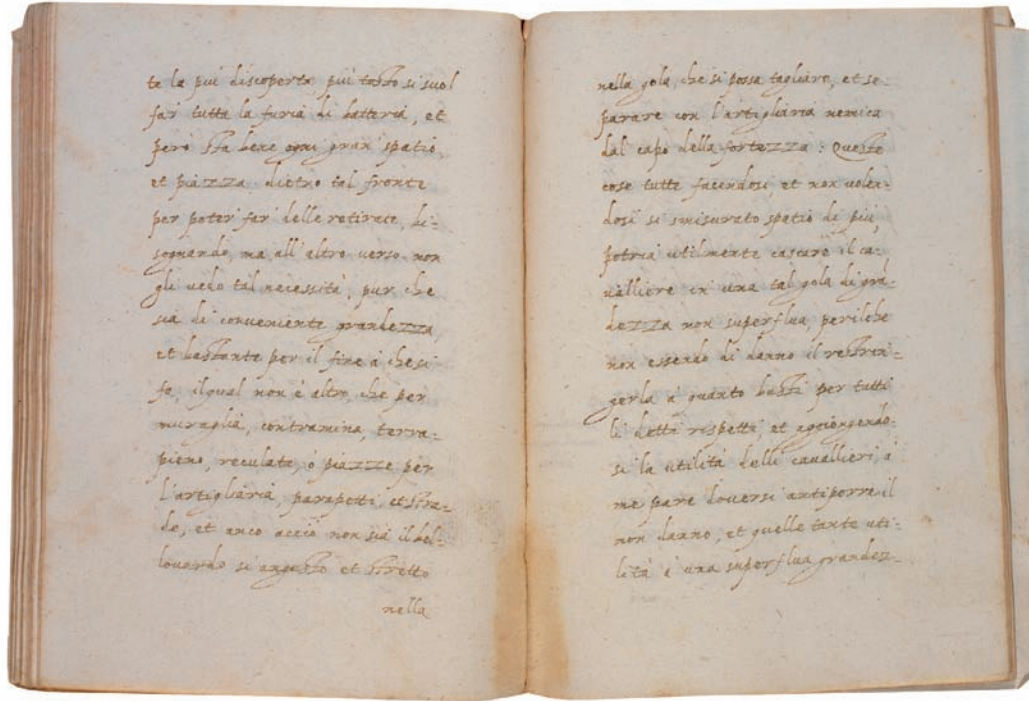 te la piu discoperta più tosto si suol
far tutta la furia di batteria, et
però sta bene ogni gran spatio,
et piazza dietro tal fronte
per poter far delle retirate, bi-
sognando, ma all'altro verso non
gli vedo tal necessità, pur che
sia di conveniente grandezza,
et bastante per il fine à che si
fa, ilqual non è altro, che per
muraglia, contramina, terra-
pieno, reculate, ò piazze per
l'artigliaria, parapetti, et stra-
do, et anco acciò non sia il bel-
louardo si angusto et stretto
nella
nella gola, che si possa tagliare, et se-
parare con l'artigliaria nemica
dal capo della fortezza: Queste
cose tutte facendosi, et non volen-
dosi si smisurato spatio di più,
potria utilmente cascare il ca-
valliere in una tal gola di gran-
dezza non superflua, perilche
non essendo di danno il restrin-
gerla à quanto basti per tutti
li detti rispetti, et aggiongendo-
si la utilità delli cavallieri, à
me pare doversi antiporre il
non danno, et quelle tante uti-
lità à una superflua grandez-